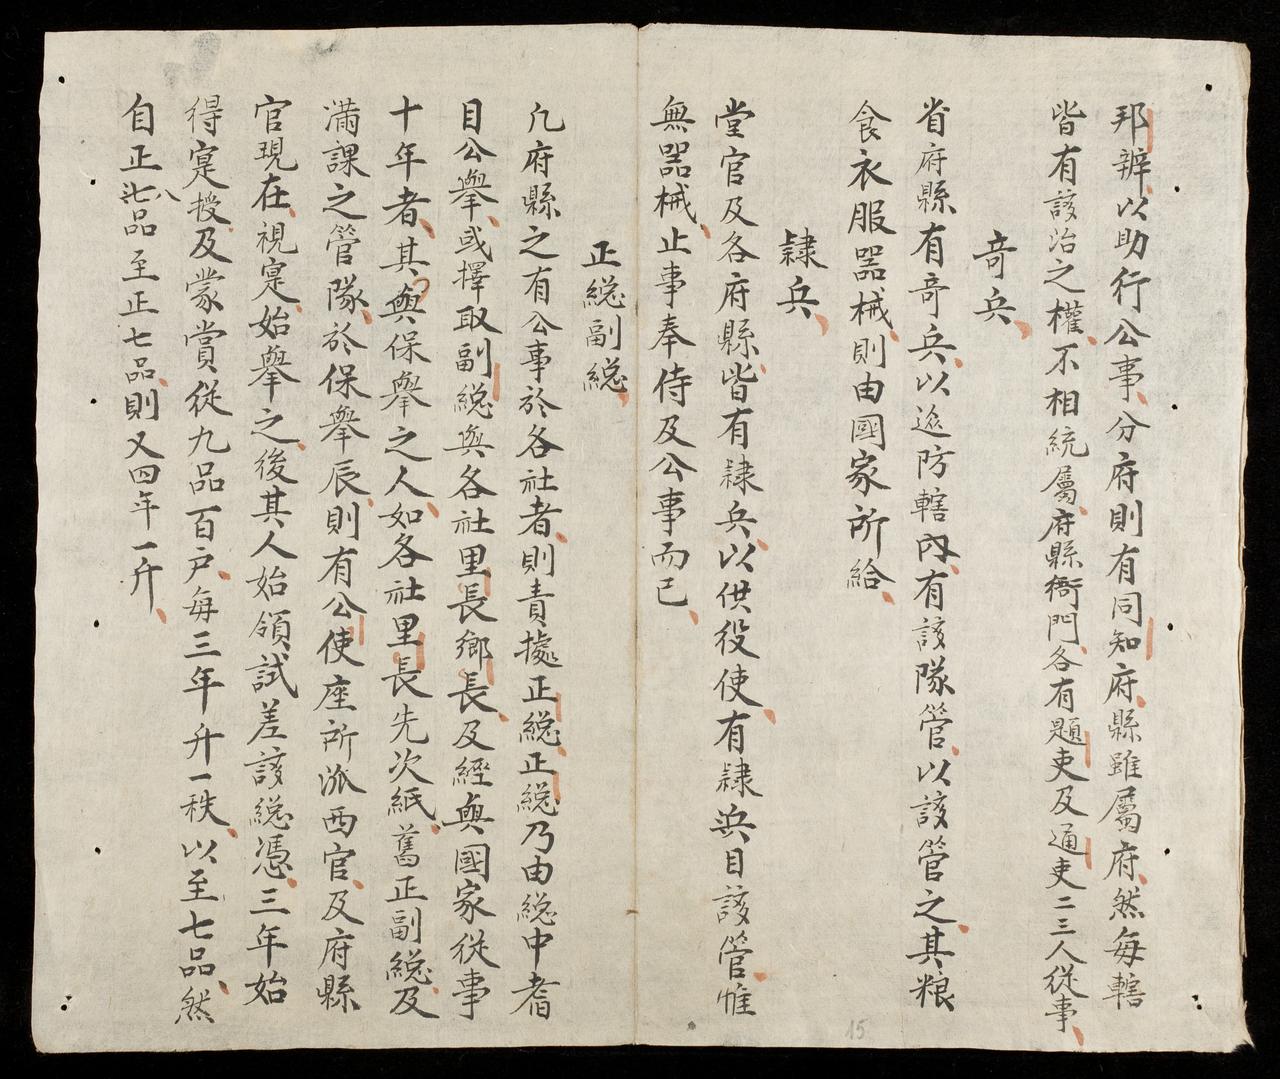 邦辦以助行公事分府則有同知府縣雖屬府然每轄
皆有該治之權不相統屬府縣衙門各有題吏及通吏二三人從事
竒兵
省府縣有竒兵以巡防轄內有該隊管以該管之其粮
食衣服噐械則由國家所給
隸兵
堂官及各府縣皆有隸兵以供役使有隸兵目該管惟
無噐械止事奉侍及公事而已
正總副總
凢府縣之有公事於各社者則責據正總正總乃由總中耆
目公舉或擇取副總與各社里長鄉長及經與國家從事
十年者其與保舉之人如各社里長先次紙舊正副總及
滿課之管隊於保舉辰則有公使座所派西官及府縣
官現在視寔始舉之後其人始領試差該總憑三年始
得寔授及蒙賞從九品百户每三年升一秩以至七品然
自正八品至正七品則又四年一升
15